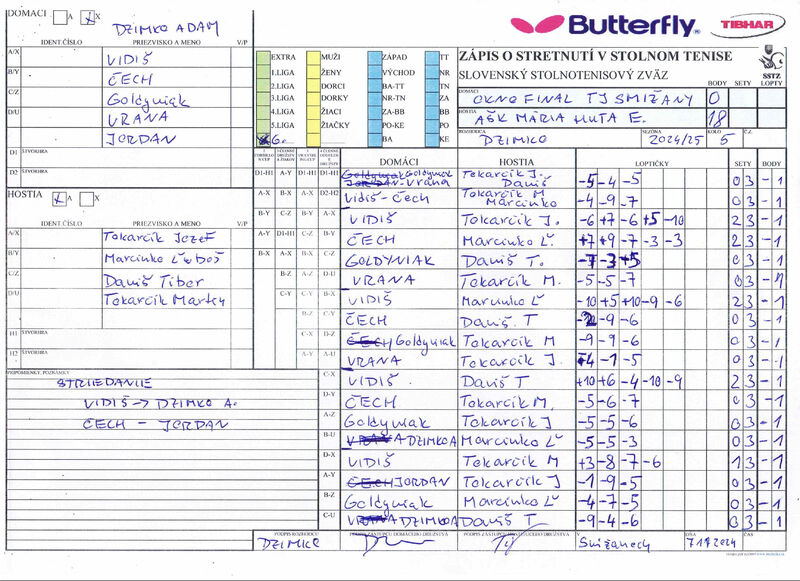 DOMÁCI A X
DZIMKO ADAM
IDENT.ČÍSLO PRIEZVISKO A MENO V/P
A/X VIDIŠ
B/Y ČECH
C/Z Goldyniak
D/U VRANA
JORDAN
D1 ŠTVORHRA
D2
HOSTIA A X
IDENT.ČÍSLO PRIEZVISKO A MENO V/P
A/X Tokarčík Jozef
B/Y Marcinko Ľuboš
C/Z Daniš Tibor
D/U Tokarčík
H1 ŠTVORHRA
H2 ŠTVORHRA
PRIPOMIENKY, POZNÁMKY
STRIEDANIE
VIDIŠ → DZIMKO A.
ČECH - JORDAN
Butterfly
TIBHAR
EXTRA MUŽI ZÁPAD TT
1.LIGA ŽENY VÝCHOD NR
2.LIGA DORCI BA-TT TN
3.LIGA DORKY NR-TN ZA
4.LIGA ŽIACI ZA-BB BB
5.LIGA ŽIAČKY PO-KE PO
6. BA KE
ZÁPIS O STRETNUTÍ V STOLNOM TENISE
SLOVENSKÝ STOLNOTENISOVÝ ZVÄZ
SSTZ
BODY SETY LOPTY
DOMÁCI OKNO FINAL TJ SMIŽANY 0
HOSTIA AŠK MÁRIA HUTA E. 18
ROZHODCA DZIMKO SEZÓNA 2024/25 KOLO 5 Č.Z.
DOMÁCI HOSTIA LOPTIČKY SETY BODY
D1-H1 A-Y D1-H1 D1-H1 Goldyniak - Vrana Tokarčík J. Daniš -5 -4 -5 03 -1
A-X B-X A-X D2-H2 VIDIŠ - ČECH Tokarčík M Marcinko -4 -9 -7 03 -1
B-Y C-Z B-Y A-X VIDIŠ Tokarčík J. -6 +7 -6 +5 -10 23 -1
A-Y D1-H1 C-Z B-Y ČECH Marcinko Ľ. +7 +9 -7 -3 -3 23 -1
B-X A-X A-Y C-Z GOLDYNIAK Daniš T. -7 -3 +5 03 -1
B-Z A-Z D-U VRANA Tokarčík M. -5 -5 -7 03 -1
C-Y B-X A-Y VIDIŠ Marcinko Ľ -10 +5 +10 -9 -6 23 -1
B-Z C-Y B-Z ČECH Daniš. T -9 -6 03 -1
C-X C-X D-Z C-U Goldyniak Tokarčík M -9 -9 -6 03 -1
A-Y A-U D-X VRANA Tokarčík J. -1 -5 03 -1
C-X VIDIŠ Daniš T +10 +6 -4 -10 -9 23 -1
D-Y ČECH Tokarčík M. -5 -6 -7 03 -1
A-Z Goldyniak Tokarčík J -5 -5 -6 03 -1
B-U A DZIMKO A Marcinko Ľ -5 -5 -3 03 -1
D-X VIDIŠ Tokarčík M +3 -8 -7 -6 13 -1
A-Y JORDAN Tokarčík J -1 -9 -5 03 -1
B-Z Goldyniak Marcinko Ľ -4 -7 -5 03 -1
C-U A DZIMKO A Daniš T -9 -4 -6 03 -1
PODPIS ROZHODCU DZIMKO PODPIS ZÁSTUPCU DOMÁCEHO DRUŽSTVA PODPIS ZÁSTUPCU HOSŤUJÚCEHO DRUŽSTVA V Smižanech DŇA ČAS